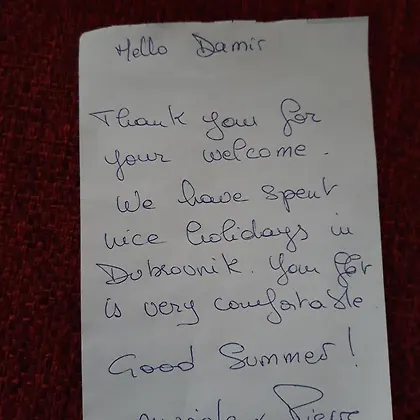 Hello Damir
Thank you for
your welcome.
We have spent
nice holidays in
Dubrovnik. Your flat
is very comfortable.
Good Summer!
Pierre